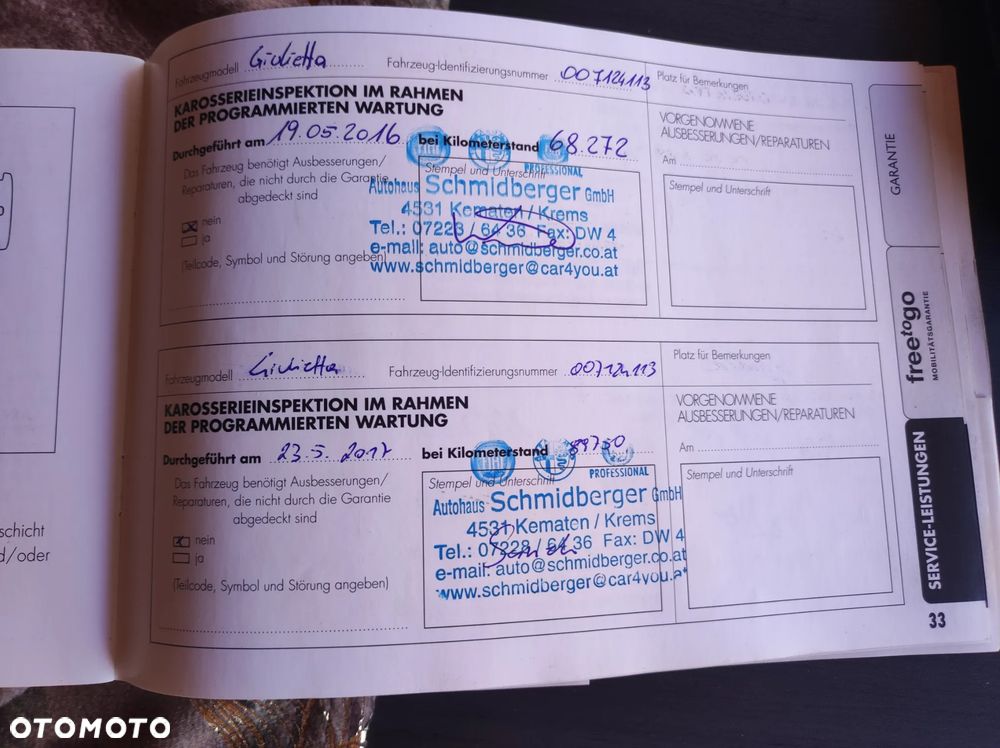 Fahrzeugmodell Giulietta Fahrzeug-Identifizierungsnummer 007124113 Platz für Bemerkungen
KAROSSERIEINSPEKTION IM RAHMEN
DER PROGRAMMIERTEN WARTUNG
Durchgeführt am 19.05.2016 bei Kilometerstand 68.272
Das Fahrzeug benötigt Ausbesserungen/
Reparaturen, die nicht durch die Garantie
abgedeckt sind
nein
ja
(Teilcode, Symbol und Störung angeben)
Stempel und Unterschrift
PROFESSIONAL
Autohaus Schmidberger GmbH
4531 Kematen / Krems
Tel.: 07228 / 64 36 Fax: DW 4
e-mail: auto@schmidberger.co.at
www.schmidberger@car4you.at
VORGENOMMENE
AUSBESSERUNGEN/REPARATUREN
Am
Stempel und Unterschrift
Fahrzeugmodell Giulietta Fahrzeug-Identifizierungsnummer 007124113 Platz für Bemerkungen
KAROSSERIEINSPEKTION IM RAHMEN
DER PROGRAMMIERTEN WARTUNG
Durchgeführt am 23.5.2017 bei Kilometerstand 89750
Das Fahrzeug benötigt Ausbesserungen/
Reparaturen, die nicht durch die Garantie
abgedeckt sind
nein
ja
(Teilcode, Symbol und Störung angeben)
Stempel und Unterschrift
PROFESSIONAL
Autohaus Schmidberger GmbH
4531 Kematen / Krems
Tel.: 07228 / 64 36 Fax: DW 4
e-mail: auto@schmidberger.co.at
www.schmidberger@car4you.at
VORGENOMMENE
AUSBESSERUNGEN/REPARATUREN
Am
Stempel und Unterschrift
GARANTIE
freetogo
MOBILITÄTSGARANTIE
SERVICE-LEISTUNGEN
33
schicht
d/oder
OTOMOTO